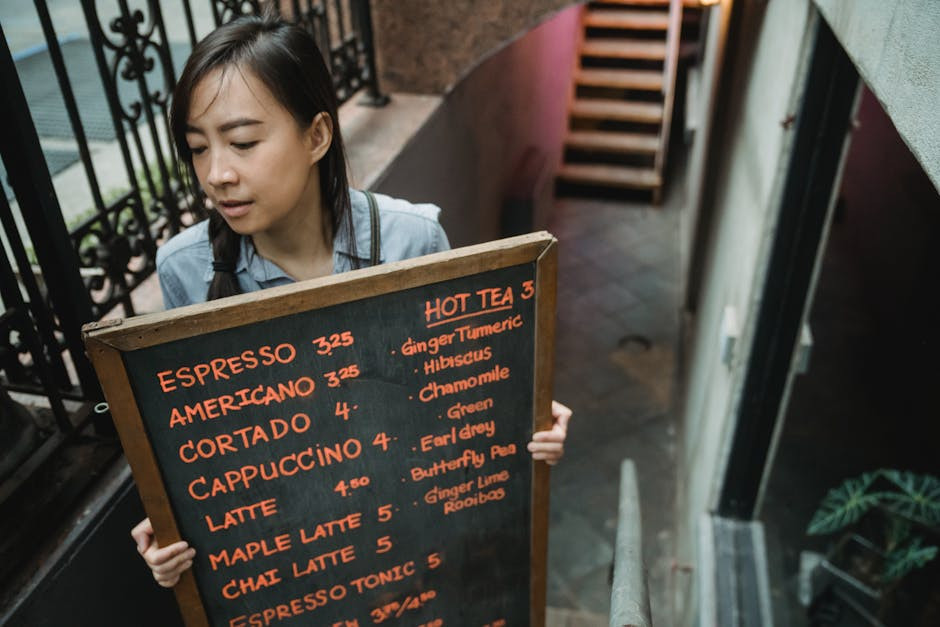 ESPRESSO 3.25
AMERICANO 3.25
CORTADO 4.
CAPPUCCINO 4.
LATTE 4.50
MAPLE LATTE 5
CHAI LATTE 5
ESPRESSO TONIC 5
3.75/4.50
4.50
HOT TEA 3
· Ginger Turmeric
· Hibiscus
· Chamomile
· Green
· Earl Grey
· Butterfly Pea
· Ginger Lime
Rooibas